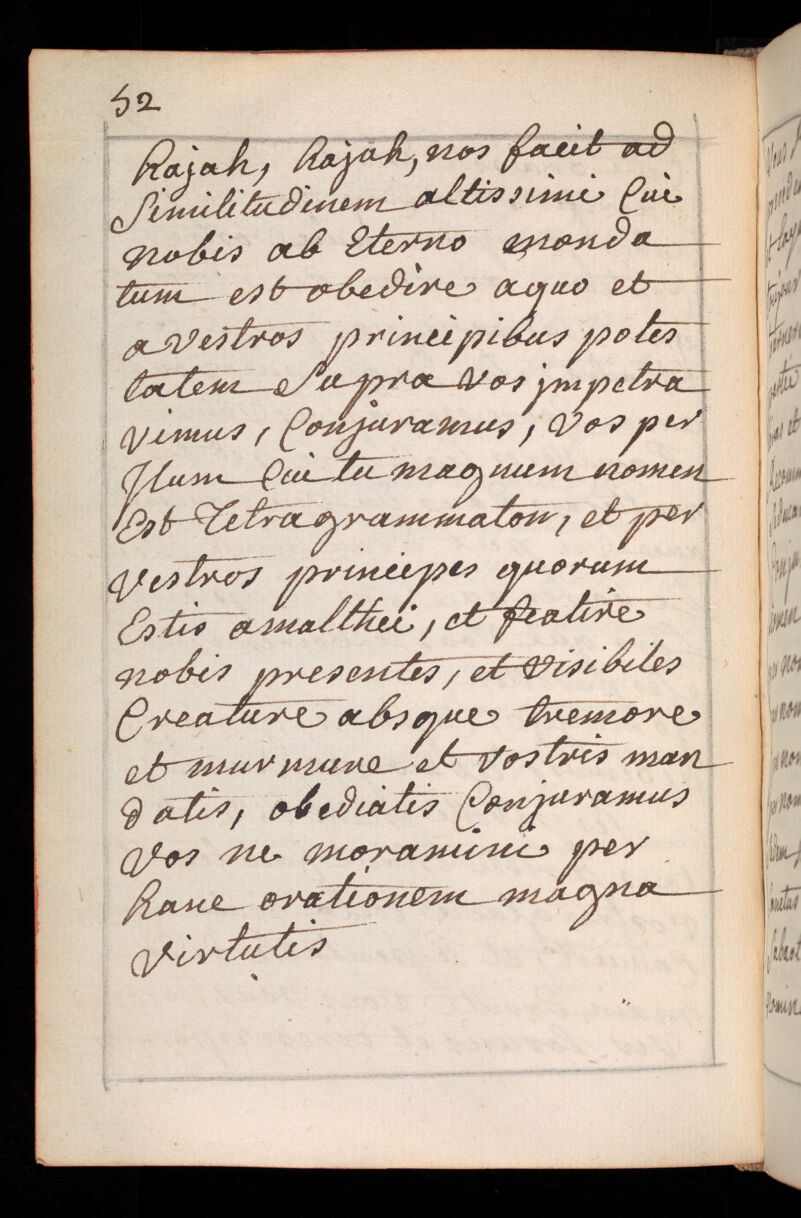 52
hajah, hajah, nos facit ad
Similitudinem altissimi Cui
nobis ab Eterno manda
tum est obedire aquo et
a vestros principibus potes
tatem Supra vos jmpetra
vimus, Conjuramus, vos per
Jlum Cui tu magnum nomen
Est Tetragrammaton, et per
vestros principes quorum
Estis amalthei, et featire
nobis presentes, et visibiles
Creature absque tremore
et murmure et vostris man
datis, obediatis Conjuramus
vos ne moramini per
hanc orationem magna
virtutis